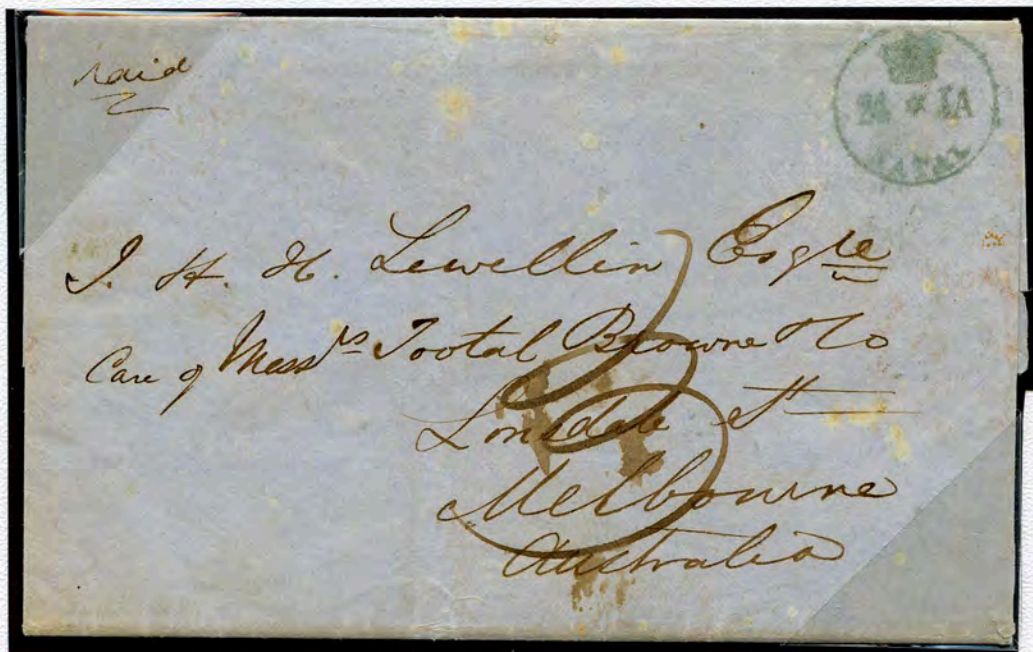 Paid
24 * IA
J. H. H. Lewellin Esqre
Care of Messrs Tootal Browne & Co
Lonsdale St
Melbourne
Australia
3